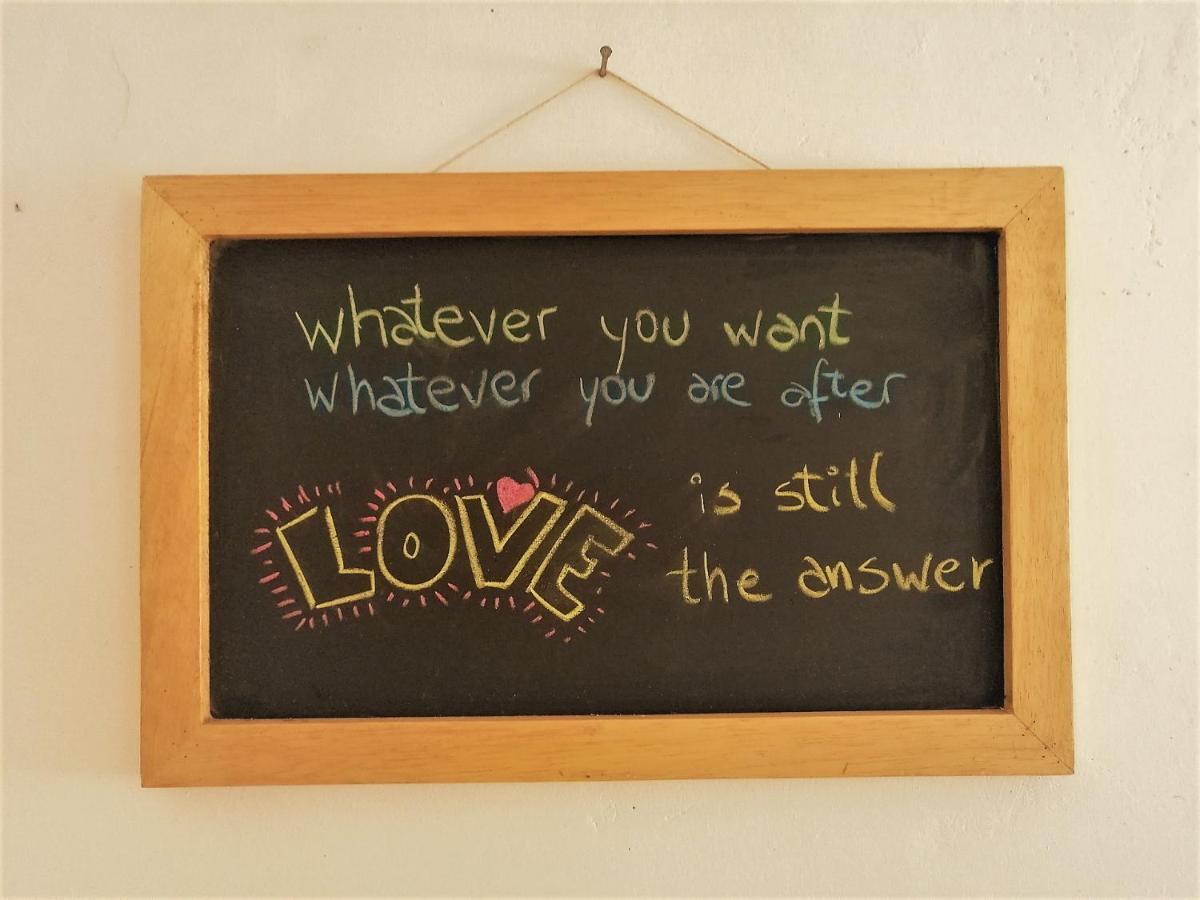 whatever you want
whatever you are after
LOVE is still
the answer